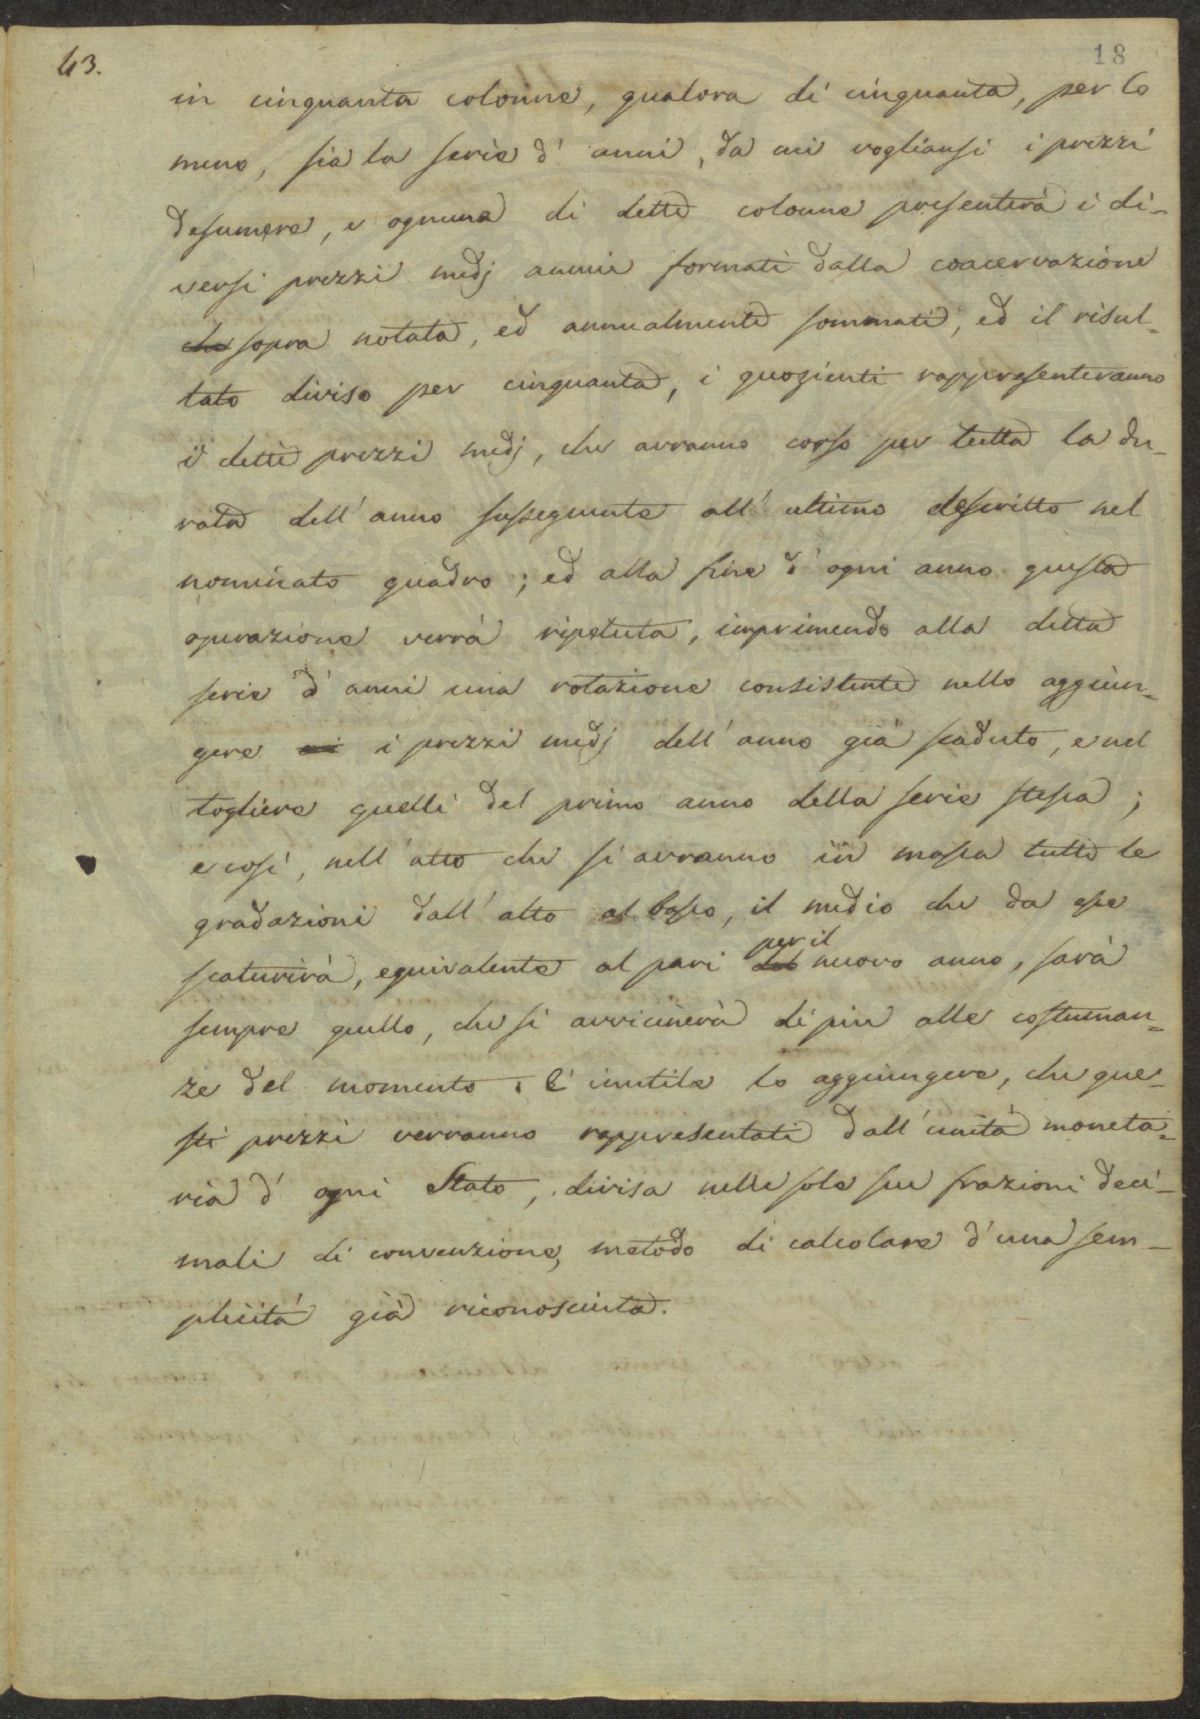 43.
18
in cinquanta colonne, qualora di cinquanta, per lo
meno, sia la serie d'anni, da cui vogliansi i prezzi
desumere, e ognuna di dette colonne presenterà i di-
versi prezzi medj annui formati dalla coacervazione
che sopra notata, ed annualmente sommati, ed il risul-
tato diviso per cinquanta, i quozienti rappresenteranno
i detti prezzi medj, che avranno corso per tutta la du-
rata dell'anno susseguente all'ultimo descritto nel
nominato quadro; ed alla fine d'ogni anno questa
operazione verrà ripetuta, imprimendo alla detta
serie d'anni una rotazione consistente nello aggiun-
gere ai i prezzi medj dell'anno già scaduto, e nel
togliere quelli del primo anno della serie stessa;
e così, nell'atto che si avranno in massa tutte le
gradazioni dall'alto al basso, il medio che da esse
per il
scaturirà, equivalente al pari del nuovo anno, sarà
sempre quello, che si avvicinerà di più alle costuman-
ze del momento. È inutile lo aggiungere, che que-
sti prezzi verranno rappresentati dall'unità moneta-
ria d'ogni Stato, divisa nelle sole sue frazioni deci-
mali di convenzione, metodo di calcolare d'una sem-
plicità già riconosciuta.